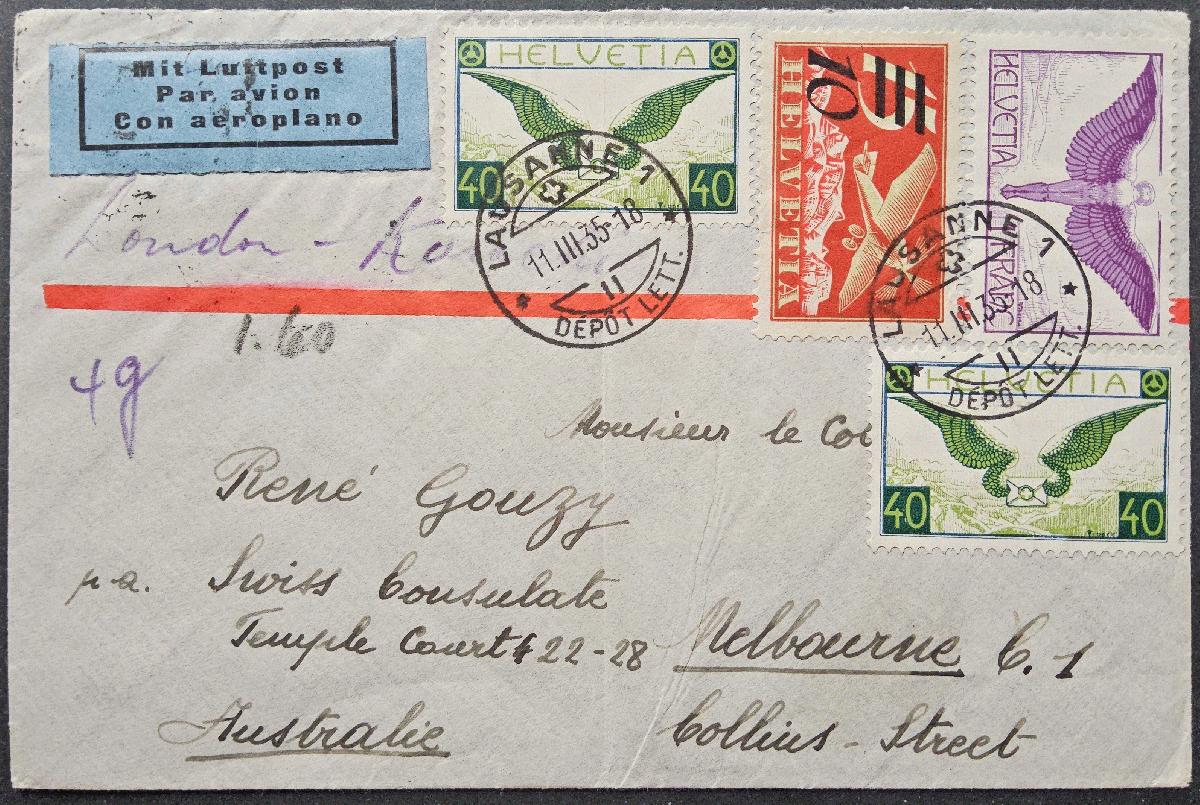 Mit Luftpost
Par avion
Con aeroplano
HELVETIA
40 40
10
HELVETIA
HELVETIA
LAUSANNE 1
11.III.35-18
II
DÉPÔT LETT.
LAUSANNE 1
11.III.35-18
II
DÉPÔT LETT.
London -
1.60
4g
HELVETIA
40 40
Monsieur le
René Gouzy
p.a. Swiss Consulate
Temple Court 422-28 Melbourne C.1
Australie Collins-Street